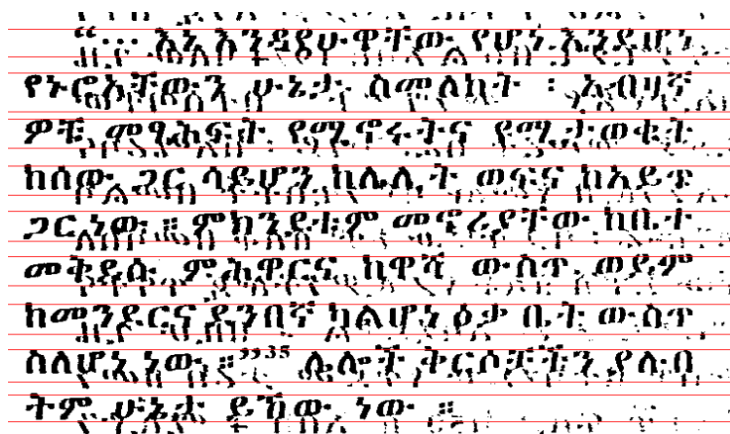 “... እኔ እንዳየሁዋቸው የሆነ እንደሆነ
የኑሮአቸውን ሁኔታ ስመለከት ፡ አብዛኛ
ዎቹ መፃሕፍት የሚኖሩትና የሚታወቁት
ከሰው ጋር ሳይሆን ከሌሊት ወፍና ከአይጥ
ጋር ነው ። ምክንያቱም መኖሪያቸው ከቤተ
መቅደሱ ምሕዋርና ከዋሻ ውስጥ ወይም
ከመንደርና ደንበኛ ካልሆነ ዕቃ ቤት ውስጥ
ስለሆነ ነው ።”35 ሌሎች ቅርሶቻችን ያሉበ
ትም ሁኔታ ይኸው ነው ።